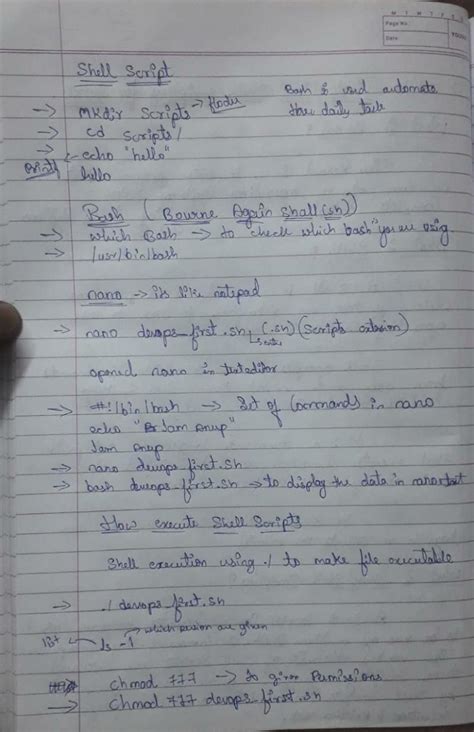 M T W T F S
Page No.:
Date:
YOUVA
Shell Script
Bash is used automate
their daily task
→ mkdir Scripts → floder
→ cd scripts/
→ echo "hello"
Print
hello
Bash (Bourne Again Shall (sh))
→ which Bash → to check which bash you are using.
→ /usr/bin/bash
nano → is like notipad
→ nano devops_first.sh (.sh) (Scripts extension)
opened nano in texteditor
→ #!/bin/bash → Set of Commands in nano
echo "Iam Anup"
Iam Anup
→ nano devops_first.sh
→ bash devops_first.sh → to display the data in nano text
How execute Shell Scripts
Shell execution using ./ to make file executable
→ ./devops_first.sh
list ← ls -l → which are given
chmod 777 → to given Permissions
→ chmod 777 devops_first.sh